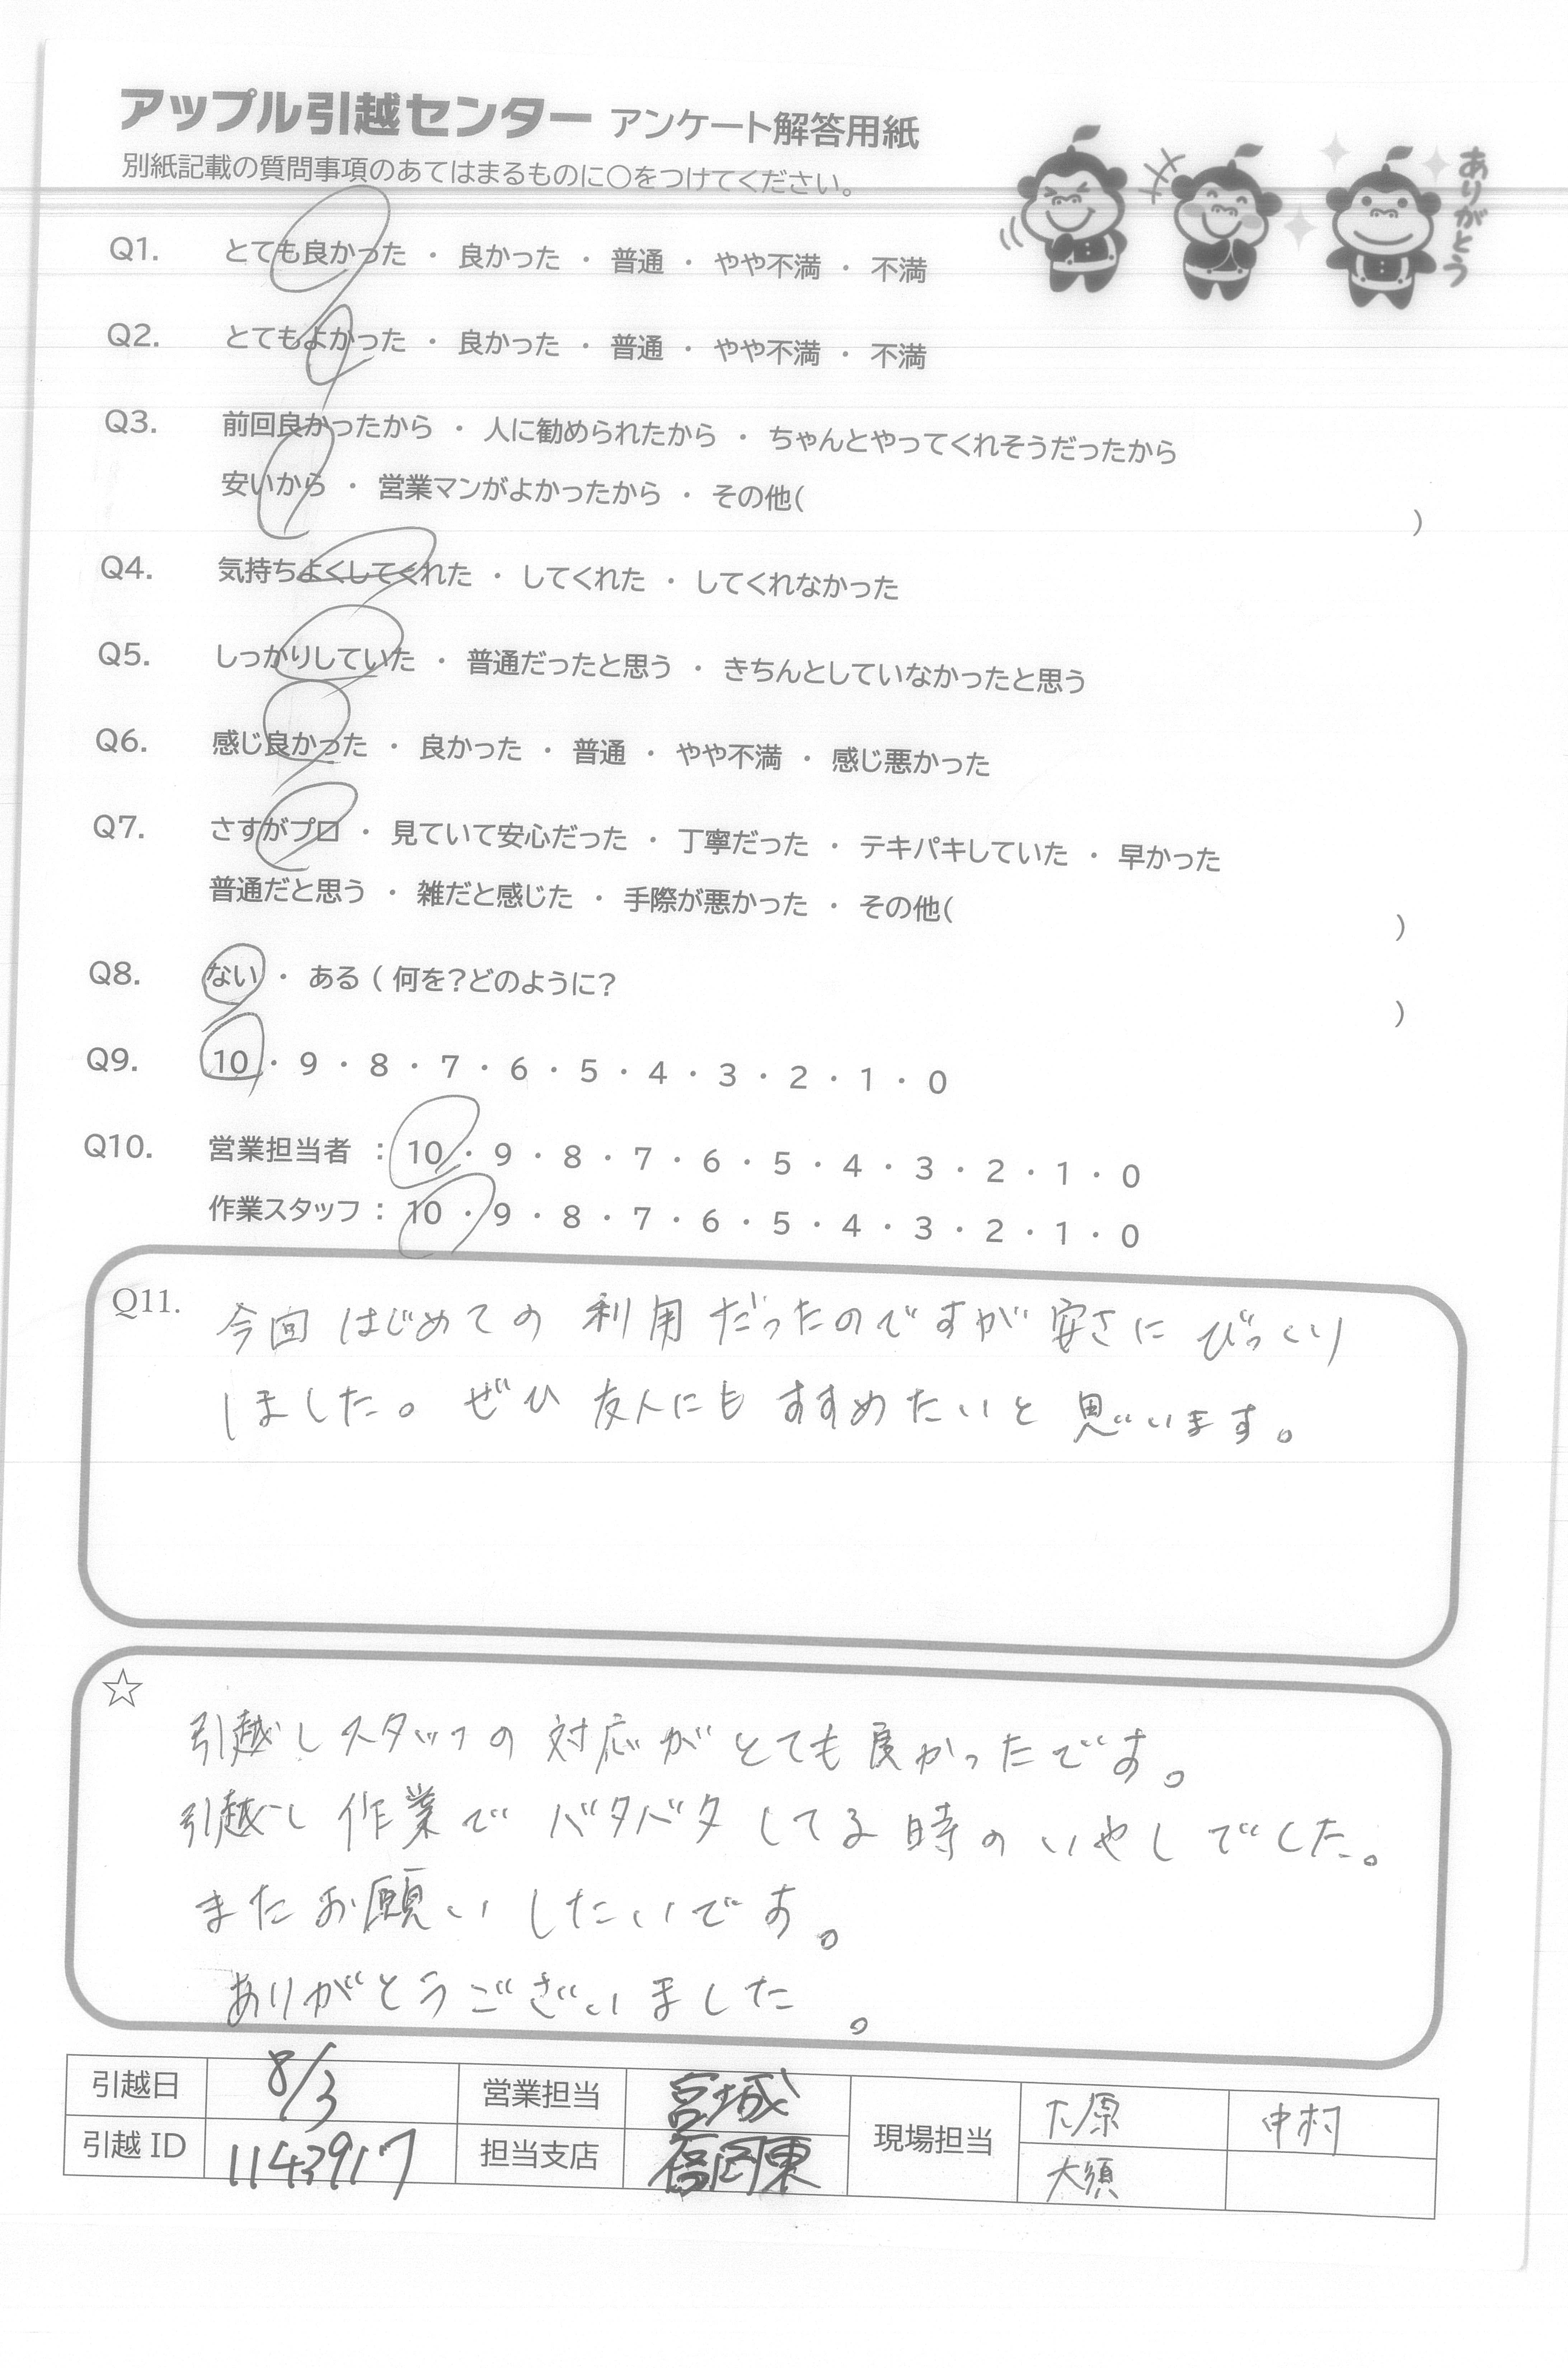 アップル引越センター アンケート解答用紙
別紙記載の質問事項のあてはまるものに〇をつけてください。
ありがとう
Q1. とても良かった ・ 良かった ・ 普通 ・ やや不満 ・ 不満
Q2. とてもよかった ・ 良かった ・ 普通 ・ やや不満 ・ 不満
Q3. 前回良かったから ・ 人に勧められたから ・ ちゃんとやってくれそうだったから
安いから ・ 営業マンがよかったから ・ その他( )
Q4. 気持ちよくしてくれた ・ してくれた ・ してくれなかった
Q5. しっかりしていた ・ 普通だったと思う ・ きちんとしていなかったと思う
Q6. 感じ良かった ・ 良かった ・ 普通 ・ やや不満 ・ 感じ悪かった
Q7. さすがプロ ・ 見ていて安心だった ・ 丁寧だった ・ テキパキしていた ・ 早かった
普通だと思う ・ 雑だと感じた ・ 手際が悪かった ・ その他( )
Q8. ない ・ ある ( 何を?どのように? )
Q9. 10 ・ 9 ・ 8 ・ 7 ・ 6 ・ 5 ・ 4 ・ 3 ・ 2 ・ 1 ・ 0
Q10. 営業担当者 : 10 ・ 9 ・ 8 ・ 7 ・ 6 ・ 5 ・ 4 ・ 3 ・ 2 ・ 1 ・ 0
作業スタッフ : 10 ・ 9 ・ 8 ・ 7 ・ 6 ・ 5 ・ 4 ・ 3 ・ 2 ・ 1 ・ 0
Q11. 今回はじめての利用だったのですが安さにびっくり
しました。ぜひ友人にもすすめたいと思います。
☆
引越しスタッフの対応がとても良かったです。
引越し作業でバタバタしてる時のいやしでした。
またお願いしたいです。
ありがとうございました。
引越日 8/3 営業担当 宮城 現場担当 大原 中村
引越 ID 1143917 担当支店 福岡東 大須